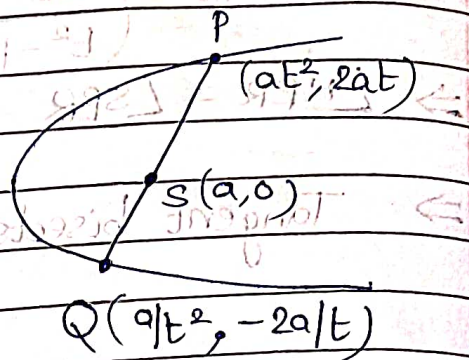 P
(at², 2at)
S(a,0)
Q(a/t², -2a/t)